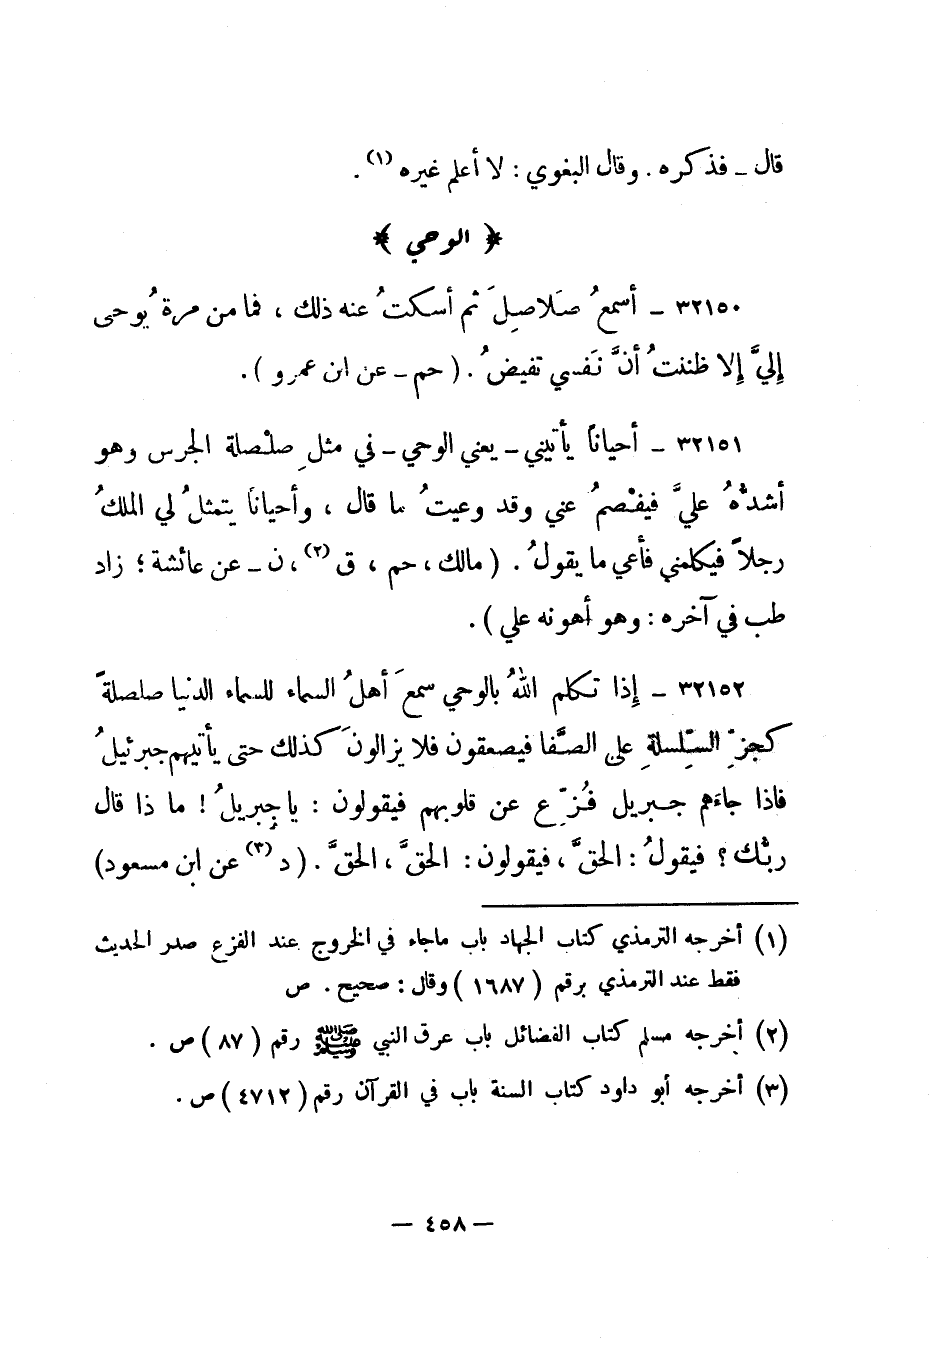 قال ـ فذكره . وقال البغوي : لا أعلم غيره (١) .
﴿ الوحي ﴾
٣٢١٥٠ ـ أسمعُ صَلاصِلَ ثم أسكتُ عنه ذلك ، فما من مرة يُوحى
إليَّ إلا ظننتُ أنَّ نَفسي تفيضُ . ( حم ـ عن ابن عمرو ) .
٣٢١٥١ ـ أحياناً يأتيني ـ يعني الوحي ـ في مثلِ صلْصلة الجرس وهو
أشدُّهُ عليَّ فيفْصمُ عني وقد وعيتُ ما قال ، وأحياناً يتمثلُ لي الملكُ
رجلاً فيكلمني فأعي ما يقولُ . ( مالك ، حم ، ق (٢) ، ن ـ عن عائشة ؛ زاد
طب في آخره : وهو أهونه علي ) .
٣٢١٥٢ ـ إذا تكلم اللهُ بالوحي سمعَ أهلُ السماء للسماء الدنيا صلصلةً
كجزِّ السِّلسلةِ على الصَّفا فيصعقون فلا يزالونَ كذلك حتى يأتيهم جبرئيلُ
فاذا جاءهم جبريل فُزِّع عن قلوبهم فيقولون : يا جِبريلُ ! ما ذا قال
ربُّك ؟ فيقولُ : الحقَّ ، فيقولون : الحقَّ ، الحقَّ . ( د (٣) عن ابن مسعود )
(١) أخرجه الترمذي كتاب الجهاد باب ماجاء في الخروج عند الفزع صدر الحديث
فقط عند الترمذي برقم ( ١٦٨٧ ) وقال : صحيح . ص
(٢) أخرجه مسلم كتاب الفضائل باب عرق النبي ﷺ رقم ( ٨٧ ) ص .
(٣) أخرجه أبو داود كتاب السنة باب في القرآن رقم ( ٤٧١٢ ) ص .
— ٤٥٨ —